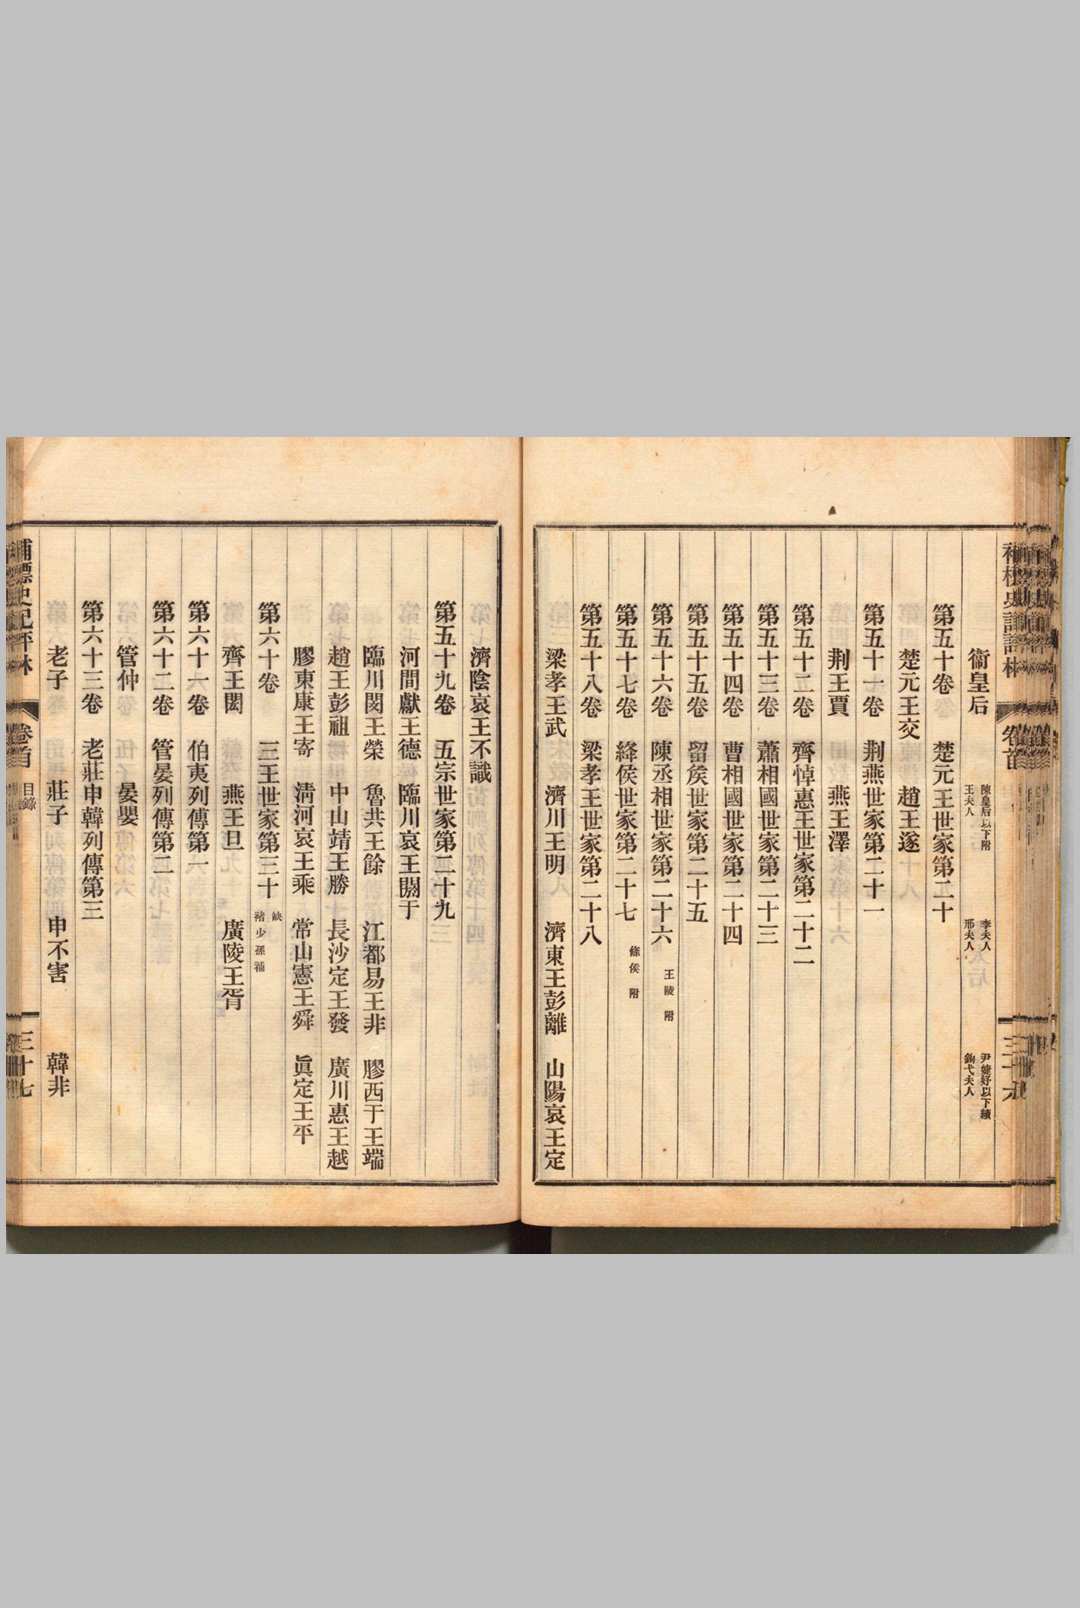 衞皇后 陳皇后以下附 王夫人 李夫人 邢夫人 尹婕妤以下續 鉤弋夫人
第五十卷 楚元王世家第二十
楚元王交 趙王遂
第五十一卷 荆燕世家第二十一
荆王賈 燕王澤
第五十二卷 齊悼惠王世家第二十二
第五十三卷 蕭相國世家第二十三
第五十四卷 曹相國世家第二十四
第五十五卷 留矦世家第二十五
第五十六卷 陳丞相世家第二十六 王陵附
第五十七卷 絳侯世家第二十七 條侯附
第五十八卷 梁孝王世家第二十八
梁孝王武 濟川王明 濟東王彭離 山陽哀王定
濟陰哀王不識
第五十九卷 五宗世家第二十九
河間獻王德 臨川哀王閼于
臨川閔王榮 魯共王餘 江都易王非 膠西于王端
趙王彭祖 中山靖王勝 長沙定王發 廣川惠王越
膠東康王寄 淸河哀王乘 常山憲王舜 眞定王平
第六十卷 三王世家第三十 缺 褚少孫補
齊王閎 燕王旦 廣陵王胥
第六十一卷 伯夷列傳第一
第六十二卷 管晏列傳第二
管仲 晏嬰
第六十三卷 老莊申韓列傳第三
老子 莊子 申不害 韓非
補標史記評林 卷首 目錄 三十七